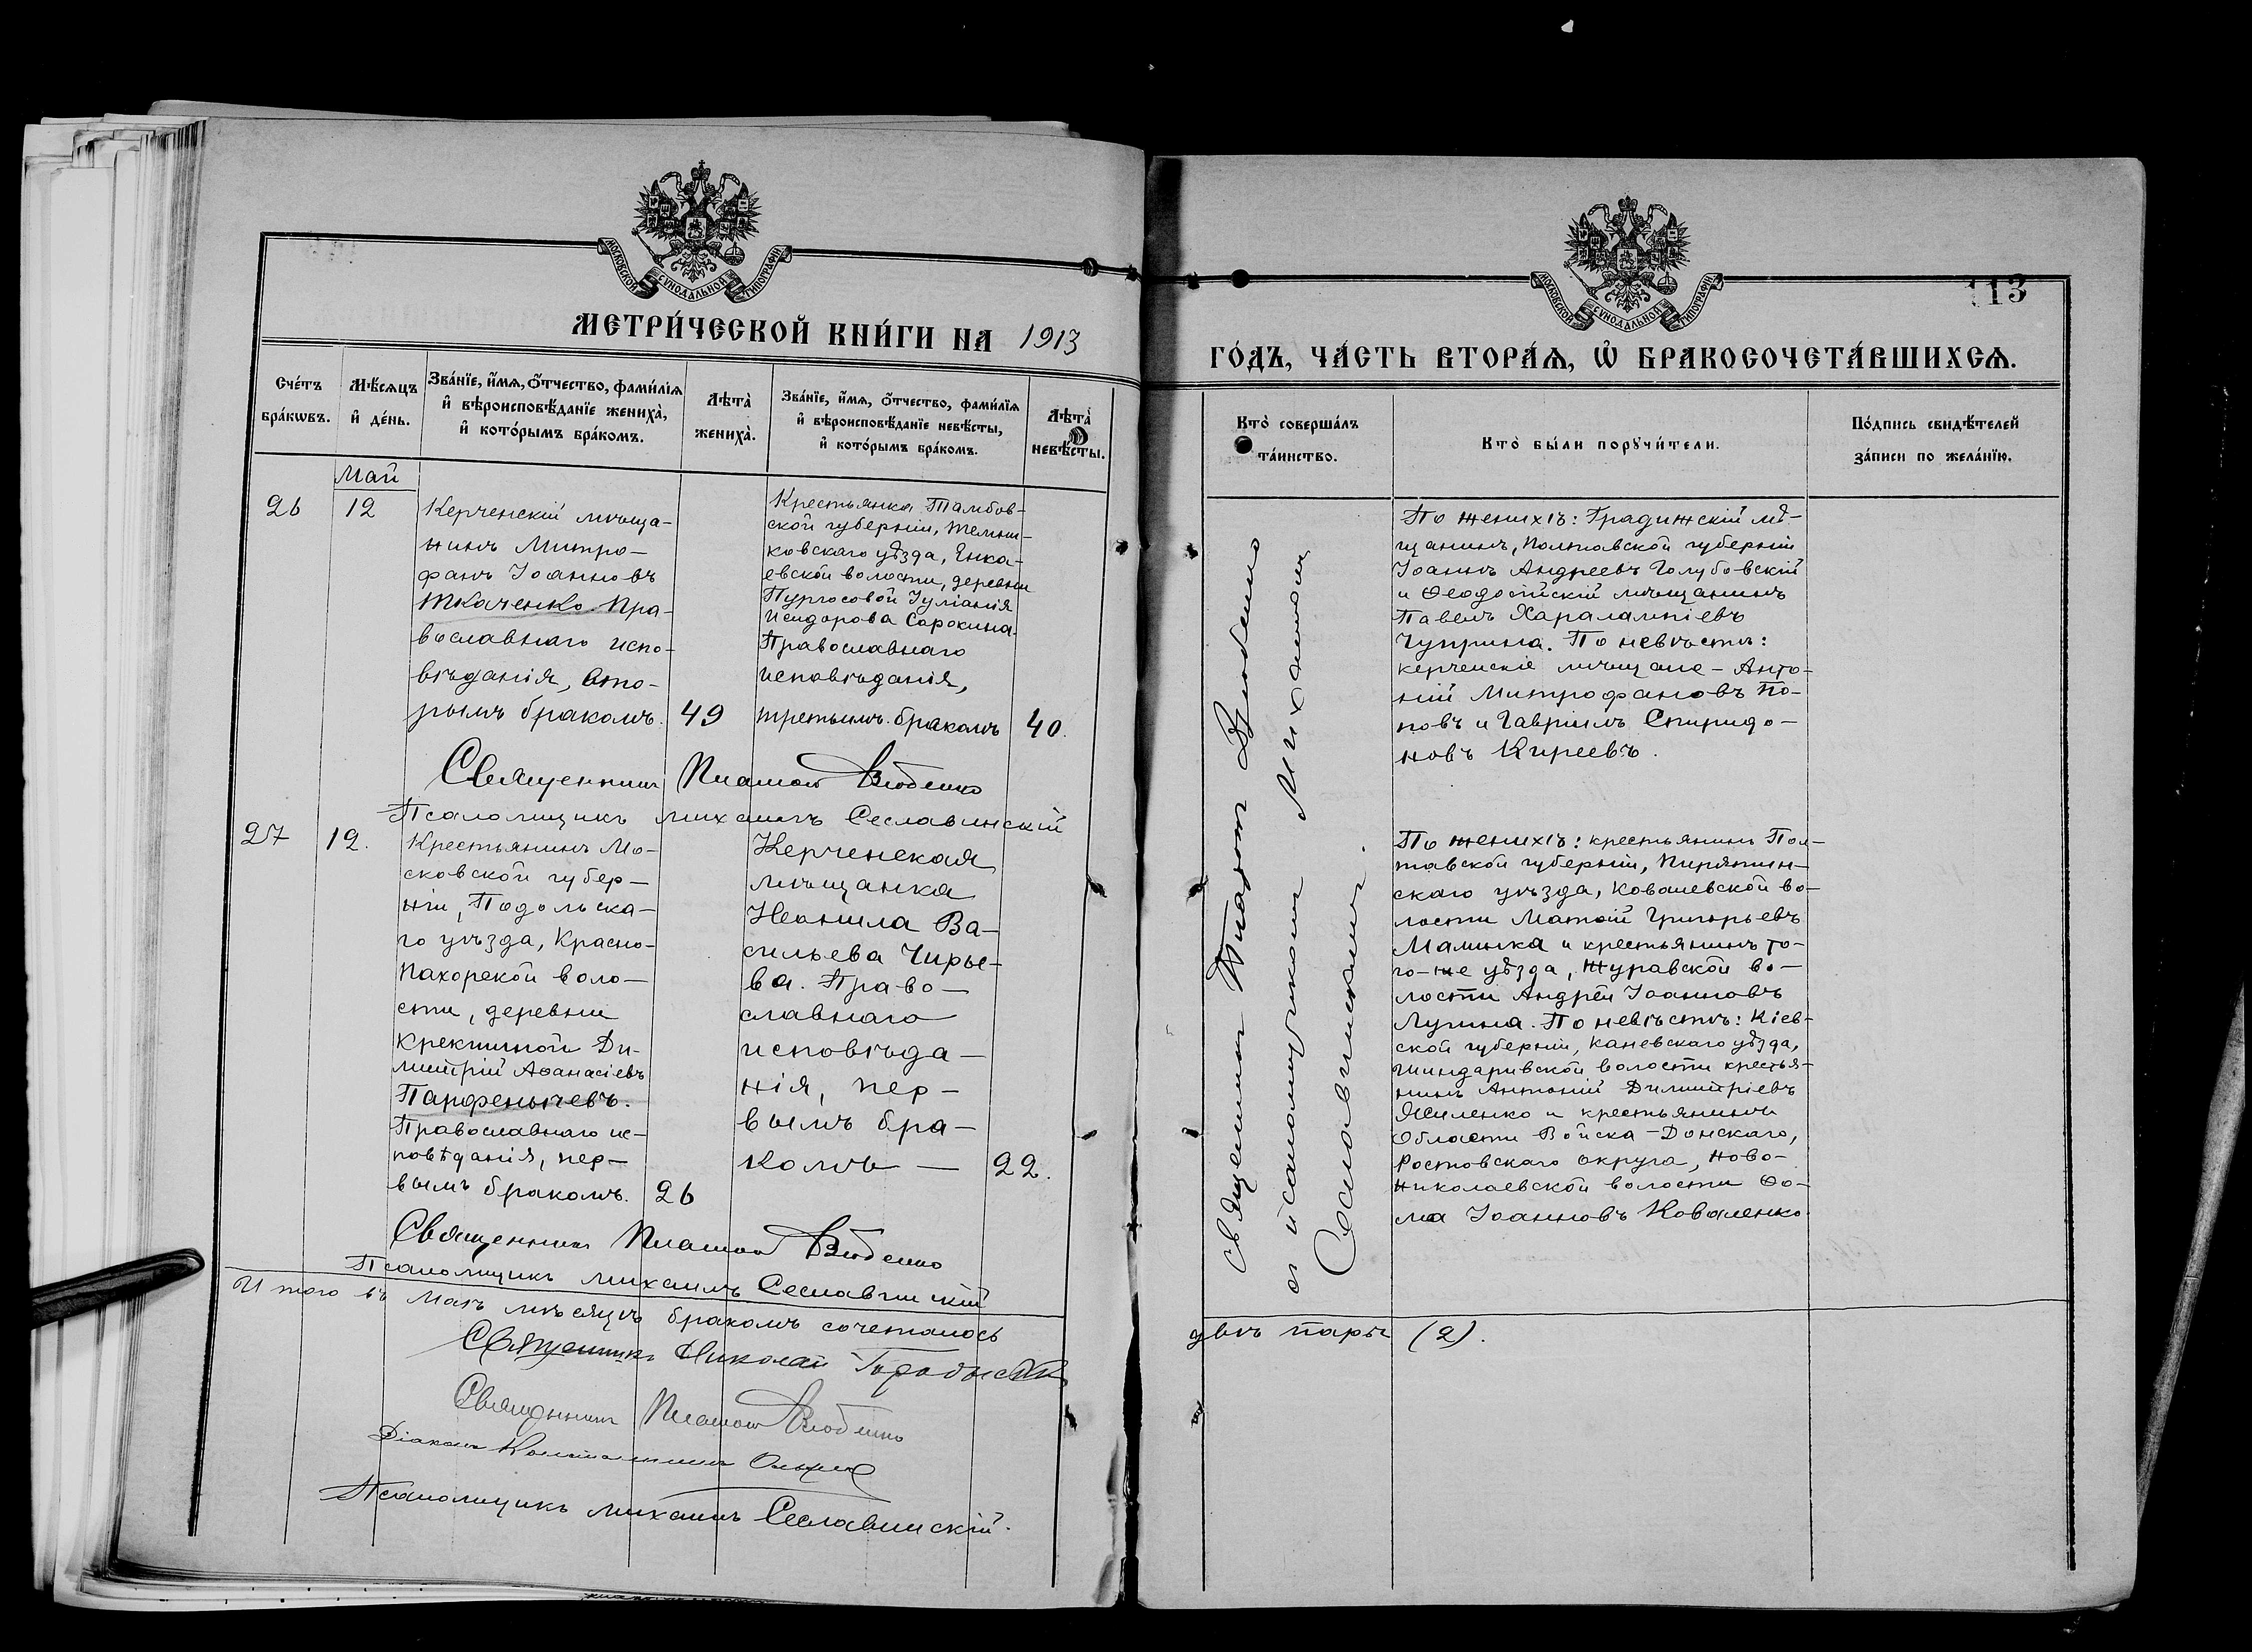 МОСКОВСКОЙ СУНОДАЛЬНОЙ ТИПОГРАФІИ
МЕТРИ́ЧЕСКОЙ КНИ́ГИ НА 1913
Сче́тъ бра́кѡвъ.
Мѣ́сяцъ и҆ де́нь.
Зва́нїе, и҆́мѧ, о҆́тчество, фами́лїѧ
и҆ вѣроисповѣ́данїе жениха̀,
и҆ кото́рымъ бра́комъ.
Лѣта̀ жениха̀.
Зва́нїе, и҆́мѧ, о҆́тчество, фами́лїѧ
и҆ вѣроисповѣ́данїе невѣ́сты,
и҆ кото́рымъ бра́комъ.
Лѣта̀ невѣ́сты.
Май
26
12
Керченскій мѣща-
нинъ Митро-
фанъ Іоанновъ
Ткаченко. Пра-
вославнаго испо-
вѣданія, вто-
рымъ бракомъ.
49
Крестьянка Тамбов-
ской губерніи, Темни-
ковскаго уѣзда, Енка-
евской волости, деревни
Пургосовой Іуліанія
Исидорова Сорокина.
Православнаго
исповѣданія,
третьимъ бракомъ
40.
Священникъ Платонъ
Псаломщикъ Михаилъ Сеславинскій
27
12.
Крестьянинъ Мо-
сковской губер-
ніи, Подольска-
го уѣзда, Красно-
пахорской воло-
сти, деревни
Крекшиной Ди-
митрій Аѳанасіевъ
Парфенычевъ.
Православнаго ис-
повѣданія, пер-
вымъ бракомъ.
26
Керченская
мѣщанка
Неонила Ва-
сильева Чирье-
ва. Право-
славнаго
исповѣда-
нія, пер-
вымъ бра-
комъ —
22.
Священникъ Платонъ
Псаломщикъ Михаилъ Сеславинскій
Итого въ Маѣ мѣсяцѣ бракомъ сочеталось
Священникъ Николай
Священникъ Платонъ
Діаконъ Константинъ
Псаломщикъ Михаилъ Сеславинскій.
МОСКОВСКОЙ СУНОДАЛЬНОЙ ТИПОГРАФІИ
113
ГО́ДЪ, ЧА́СТЬ ВТОРА́Ѧ, Ѡ҆ БРАКОСОЧЕТА́ВШИХСѦ.
Кто̀ соверша́лъ
та́инство.
Кто̀ бы́ли порꙋчи́тели.
По́дпись свидѣ́телей
за́писи по жела́нїю.
Священникъ Платонъ
съ псаломщикомъ Михаиломъ
Сеславинскимъ.
По женихѣ: Градижскій мѣ-
щанинъ, Полтавской губерніи
Іоаннъ Андреевъ Голубовскій
и Ѳеодосійскій мѣщанинъ
Павелъ Харалампіевъ
Чуприна. По невѣстѣ:
керченскіе мѣщане - Анто-
ній Митрофановъ По-
повъ и Гавріилъ Спиридо-
новъ Киреевъ.
По женихѣ: крестьянинъ Пол-
тавской губерніи, Пирятин-
скаго уѣзда, Ковалевской во-
лости Матѳій Григорьевъ
Малинка и крестьянинъ то-
го-же уѣзда, Журавской во-
лости Андрей Іоанновъ
Лупина. По невѣстѣ: Кіев-
ской губерніи, Каневскаго уѣзда,
Шиндаривской волости крестья-
нинъ Антоній Димитріевъ
Яциленко и крестьянинъ
Области Войска-Донскаго,
Ростовскаго округа, Ново-
николаевской волости Ѳо-
ма Іоанновъ Коваленко
двѣ пары (2).